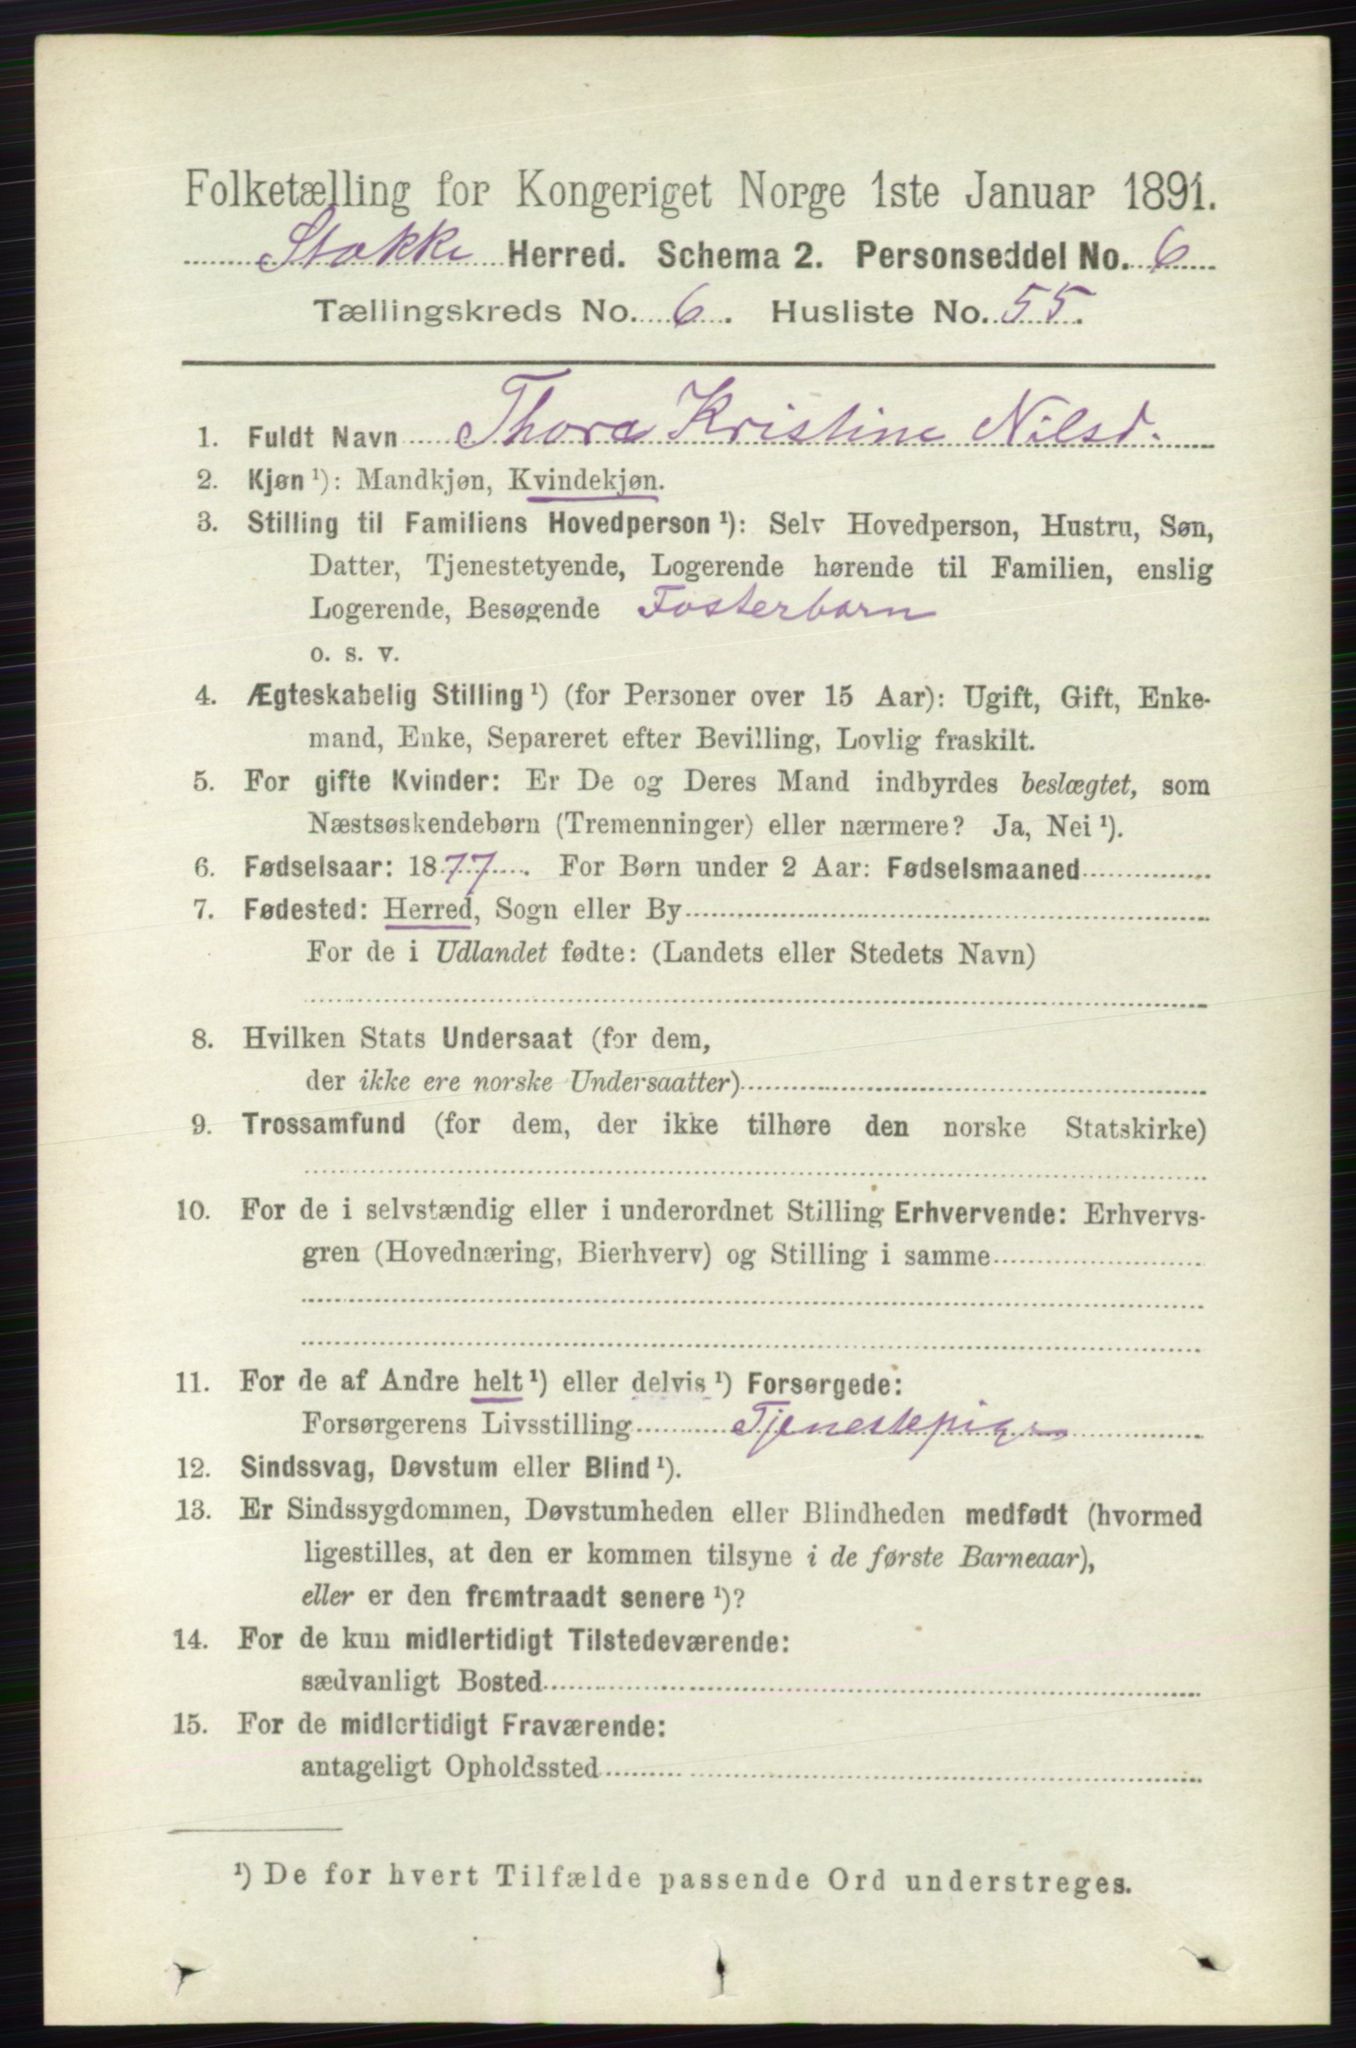 Folketælling for Kongeriget Norge 1ste Januar 1891.
Stokke Herred. Schema 2. Personseddel No. 6
Tællingskreds No. 6. Husliste No. 55.
1. Fuldt Navn Thora Kristine Nilsd.
2. Kjøn ¹): Mandkjøn, Kvindekjøn.
3. Stilling til Familiens Hovedperson ¹): Selv Hovedperson, Hustru, Søn,
Datter, Tjenestetyende, Logerende hørende til Familien, enslig
Logerende, Besøgende Fosterbarn
o. s. v.
4. Ægteskabelig Stilling ¹) (for Personer over 15 Aar): Ugift, Gift, Enke-
mand, Enke, Separeret efter Bevilling, Lovlig fraskilt.
5. For gifte Kvinder: Er De og Deres Mand indbyrdes beslægtet, som
Næstsøskendebørn (Tremenninger) eller nærmere? Ja, Nei ¹).
6. Fødselsaar: 1877. For Børn under 2 Aar: Fødselsmaaned
7. Fødested: Herred, Sogn eller By
For de i Udlandet fødte: (Landets eller Stedets Navn)
8. Hvilken Stats Undersaat (for dem,
der ikke ere norske Undersaatter)
9. Trossamfund (for dem, der ikke tilhøre den norske Statskirke)
10. For de i selvstændig eller i underordnet Stilling Erhvervende: Erhvervs-
gren (Hovednæring, Bierhverv) og Stilling i samme
11. For de af Andre helt ¹) eller delvis ¹) Forsørgede:
Forsørgerens Livsstilling Tjenestepige
12. Sindssvag, Døvstum eller Blind ¹).
13. Er Sindssygdommen, Døvstumheden eller Blindheden medfødt (hvormed
ligestilles, at den er kommen tilsyne i de første Barneaar),
eller er den fremtraadt senere ¹)?
14. For de kun midlertidigt Tilstedeværende:
sædvanligt Bosted
15. For de midlertidigt Fraværende:
antageligt Opholdssted
¹) De for hvert Tilfælde passende Ord understreges.